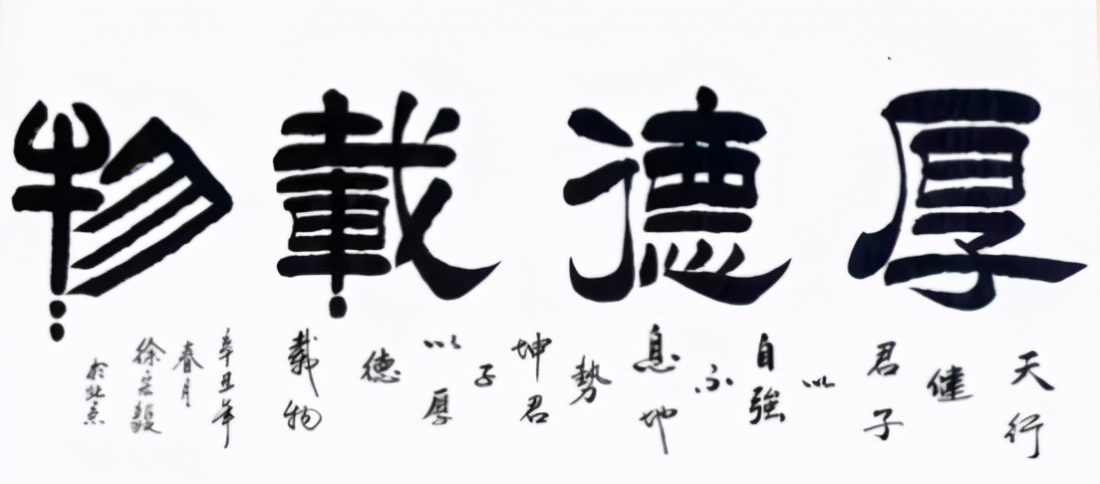 厚德載物
天行
健
君子
以
自強
不
息地
勢
坤君
子
以厚
德
载物
辛丑年
春月
徐宏毅
於北京